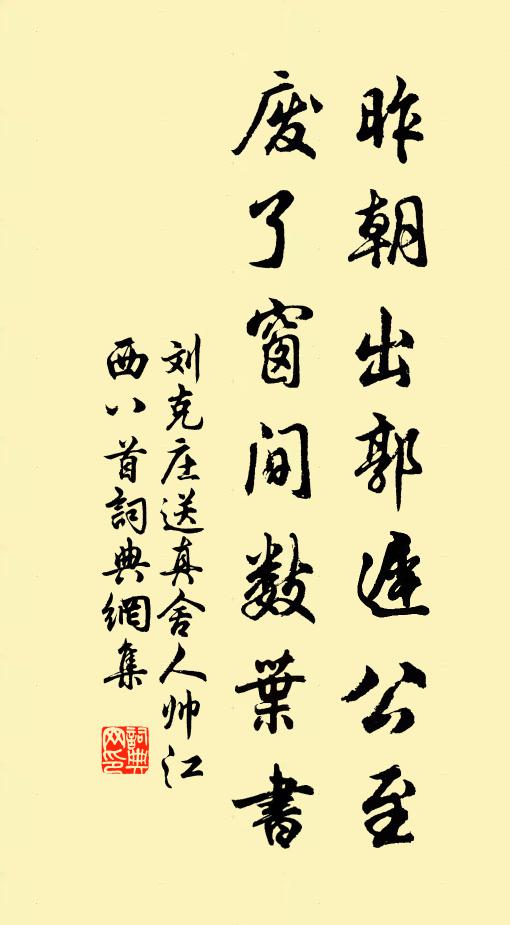 昨朝出郭迟公至
废了窗间数葉書
刘克庄送真舍人帅江
西八首詞典網集
詞典网印